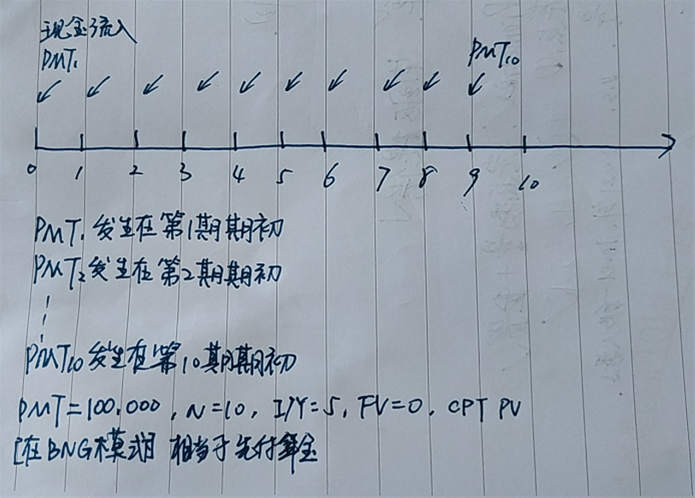 现金流入
PMT₁ PMT₁₀
0 1 2 3 4 5 6 7 8 9 10
PMT₁发生在第1期期初
PMT₂发生在第2期期初
PMT₁₀发生在第10期期初
PMT=100,000, N=10, I/Y=5, FV=0, CPT PV
[在BNG模式] 相当于先付年金